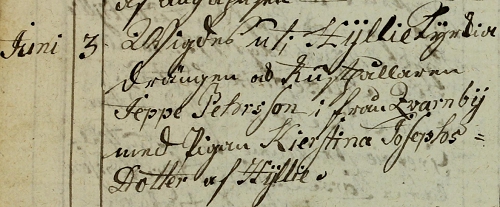 Juni 3. Wigdes uti Hÿllie Kÿrckia
Drängen och Rusthållaren
Jeppe Pehrsson ifrån Qvarnbÿ
med Pigan Kierstina Josephs=
Dotter af Hÿllie.